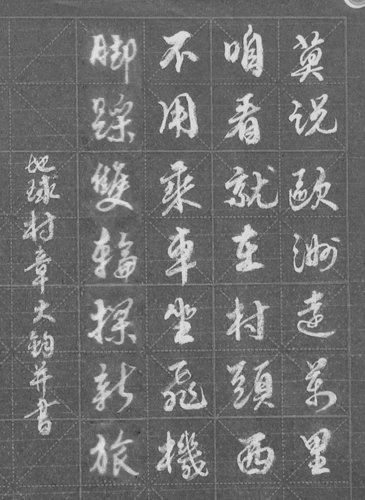 莫说欧洲远万里
咱看就在村頭西
不用乘車坐飛機
脚踩雙輪探新旅
地球村章大钧并書